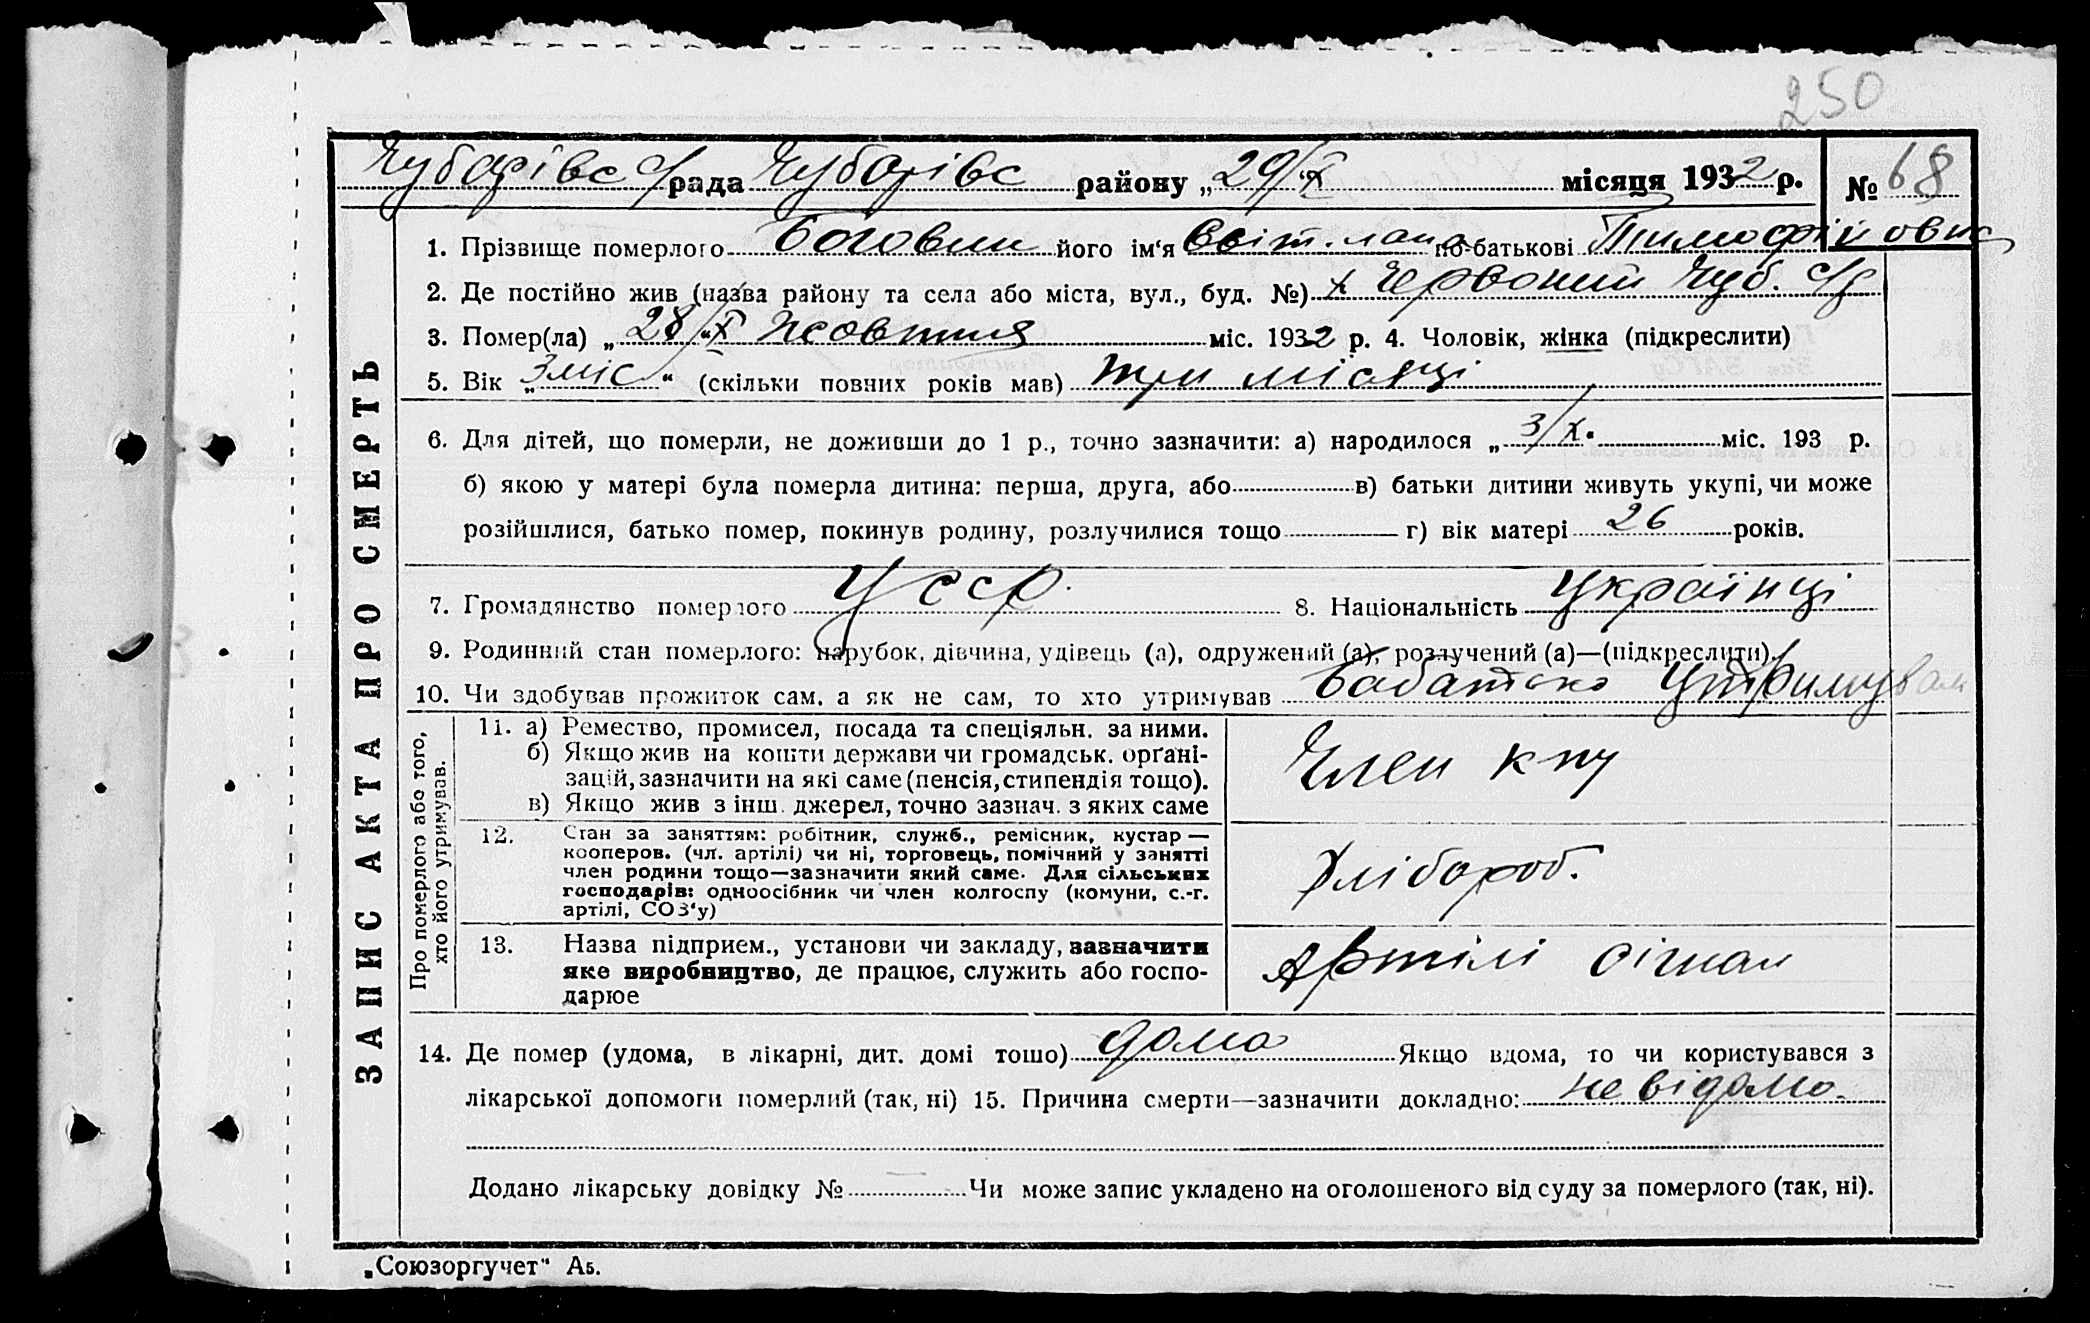 250
Чубарівс С/рада Чубарівс району „29/X місяця 1932 р. № 68
1. Прізвище померлого Боговин його ім‘я Світлана по-батькові Тимофійовна
2. Де постійно жив (назва району та села або міста, вул., буд. №) х Червоний Чуб. С/р
3. Помер(ла) „28/X“ Жовтня міс. 1932 р. 4. Чоловік, жінка (підкреслити)
5. Вік „3 міс“ (скільки повних років мав) три місяці
6. Для дітей, що померли, не доживши до 1 р., точно зазначити: а) народилося „3/X“ міс. 193 р.
б) якою у матері була померла дитина: перша, друга, або в) батьки дитини живуть укупі, чи може
розійшлися, батько помер, покинув родину, розлучилися тощо г) вік матері 26 років.
7. Громадянство померлого УССР. 8. Національність Українці
9. Родинний стан померлого: парубок, дівчина, удівець (а), одружений (а), розлучений (а)—(підкреслити)
10. Чи здобував прожиток сам, а як не сам, то хто утримував Батько Утримував
11. а) Ремество, промисел, посада та спеціяльн. за ними.
б) Якщо жив на кошти держави чи громадськ. орґані-
зацій, зазначити на які саме (пенсія, стипендія тощо).
в) Якщо жив з інш. джерел, точно зазнач. з яких саме
Член кпу
12. Стан за заняттям: робітник, служб., ремісник, кустар —
кооперов. (чл. артілі) чи ні, торговець, помічний у занятті
член родини тощо—зазначити який саме. Для сільських
господарів: одноосібник чи член колгоспу (комуни, с.-г.
артілі, СОЗ‘у)
Хлібороб.
13. Назва підприєм., установи чи закладу, зазначити
яке виробництво, де працює, служить або госпо-
дарює
Артілі сігнал
14. Де помер (удома, в лікарні, дит. домі тощо) дома Якщо вдома, то чи користувався з
лікарської допомоги померлий (так, ні) 15. Причина смерти—зазначити докладно: не відомо.
Додано лікарську довідку № Чи може запис укладено на оголошеного від суду за померлого (так, ні).
ЗАПИС АКТА ПРО СМЕРТЬ
Про померлого або того,
хто його утримував.
„Союзоргучет“ А5.